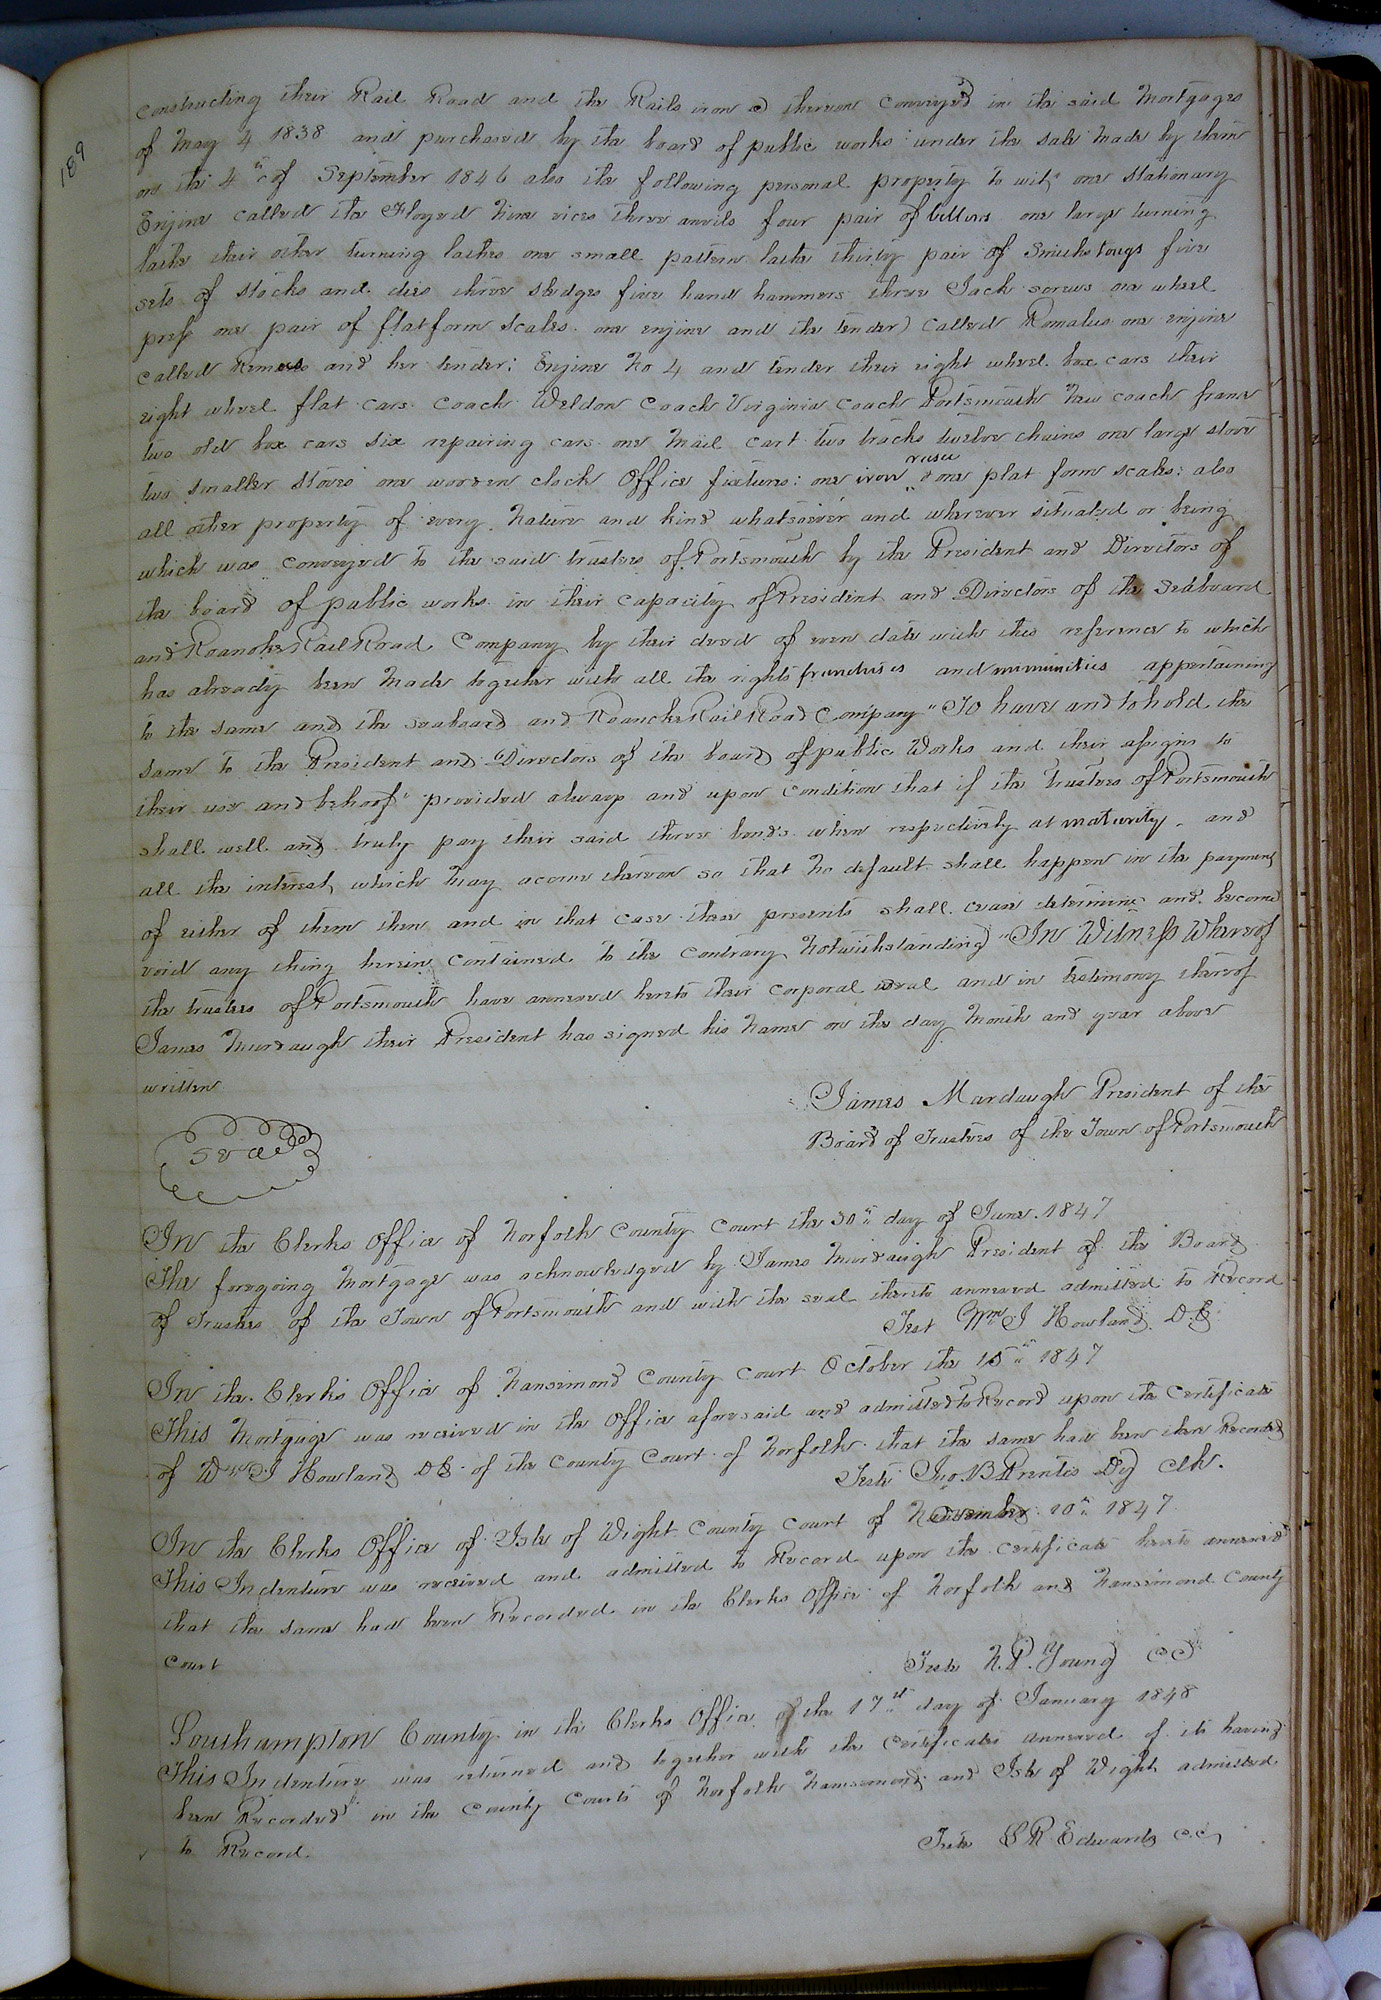 189
constructing their Rail Road and the Rails iron a thereon conveyed in the said Mortgages
of May 4 1838 and purchased by the board of public works under the sale made by them
on the 4th of September 1846 also the following personal property to wit, one stationary
Engine called the Floyed nine vices three anvils four pair of bellows one large turning
lathe their other turning lathes one small pattern lathe thirty pair of Smiths tongs five
sets of stocks and dies three sledges five hand hammers three Jack screws one wheel
press one pair of flatform scales one engine and the tender) called Romalus one engine
called Remus and her tender; Engine No 4 and tender their eight wheel box cars their
eight wheel flat cars coach Weldon Coach Virginia Coach Portsmouth New coach frame
two old box cars six repairing cars one mail cart two trucks twelve chains one large stove
two smaller stoves one wooden clock Office fixtures: one iron & one plat form scales: also
all other property of every nature and kind whatsoever and wherever situated or being
which was conveyed to the said trustees of Portsmouth by the President and Directors of
the board of public works in their capacity of President and Directors of the Seaboard
and Roanoke Rail Road Company by their deed of even date with this reference to which
has already been made together with all the rights franchises and immunities appertaining
to the same and the seaboard and Roanoke Rail Road Company "To have and to hold the
same to the President and Directors of the board of public Works and their assigns to
their use and behoof" provided always and upon condition that if the trustees of Portsmouth
shall well and truly pay their said three bonds when respectively at maturity and
all the interest, which may accrue thereon so that no default shall happen in the payment
of either of them then and in that case these presents shall cease determine and become
void any thing herein contained to the contrary notwithstanding "In Witness Whereof
the trustees of Portsmouth have annexed hereto their corporal seal and in testimony thereof
James Murdaugh their President has signed his name on the day month and year above
written
James Mardaugh President of the
Board of Trustees of the Town of Portsmouth
Seal
In the Clerks Office of Norfolk County Court the 30th day of June 1847
The foregoing Mortgage was acknowledged by James Murdaugh President of the Board
of Trustees of the Town of Portsmouth and with the seal thereto annexed admitted to Record
Test Wm J Howland D.C.
In the Clerks Office of Nansemond County Court October the 15th 1847
This Mortgage was received in the Office aforesaid and admitted to Record upon the Certificate
of Wm J Howland DC of the County Court of Norfolk that the same had been there Recorded
Teste Jno. B Prentis Dy Clk.
In the Clerks Office of Isle of Wight County Court of November 10th 1847
This Indenture was received and admitted to Record upon the certificate hereto annexed
that the same had been Recorded in the Clerks Office of Norfolk and Nansemond County
Court
Teste N. P. Young CC
Southampton County in the Clerks Office of the 17th day of January 1848
This Indenture was returned and together with the Certificates annexed of its having
been Recorded in the County Courts of Norfolk Nansemond and Isle of Wight admitted
to Record.
Teste L R Edwards C.C,